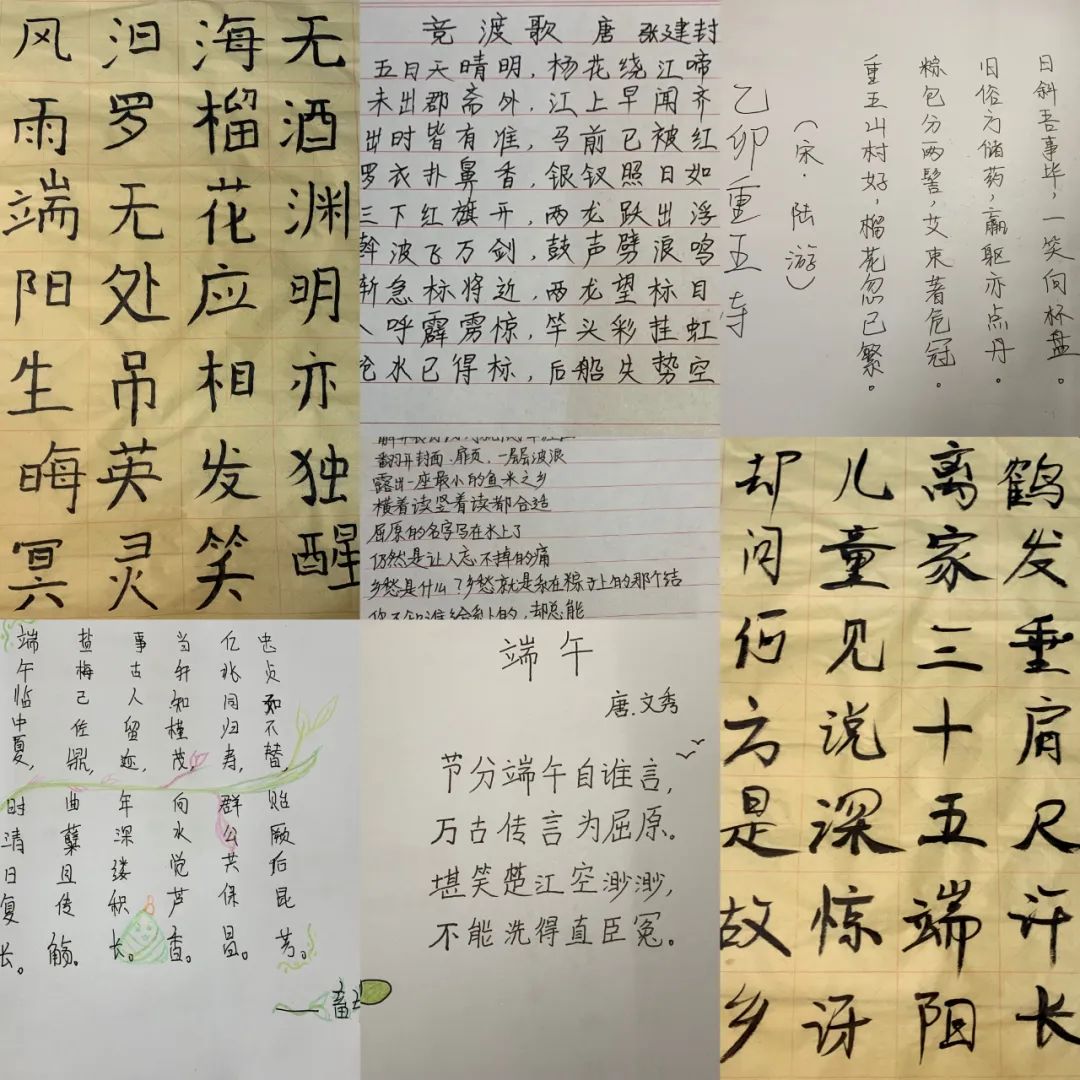 风雨端阳生晦冥
汨罗无处吊英灵
海榴花应相发笑
无酒渊明亦独醒
竞渡歌 唐 张建封
五日天晴明,杨花绕江啼
未出郡斋外,江上早闻齐
出时皆有准,马前已被红
罗衣扑鼻香,银钗照日如
三下红旗开,两龙跃出浮
波飞万剑,鼓声劈浪鸣
渐急标将近,两龙望标目
呼霹雳惊,竿头彩挂虹
水已得标,后船失势空
乙卯重五寺
(宋·陆游)
重五山村好,榴花忽已繁。
粽包分两髻,艾束著危冠。
旧俗方储药,羸躯亦点丹。
日斜吾事毕,一笑向杯盘。
翻开封面、扉页,一层层波浪
露出一座最小的鱼米之乡
横着读竖着读都合适
屈原的名字写在水上了
仍然是让人忘不掉的痛
乡愁是什么?乡愁就是系在粽子上的那个结
你不知谁给系上的,却总能
端午临中夏,时清日复长。
盐梅已佐鼎,曲糵且传觞。
事古人留迹,年深缕积长。
当轩知槿茂,向水觉芦香。
亿兆同归寿,群公共保昌。
忠贞如不替,贻厥后昆芳。
端午
唐.文秀
节分端午自谁言,
万古传言为屈原。
堪笑楚江空渺渺,
不能洗得直臣冤。
鹤发垂肩尺许长
离家三十五端阳
儿童见说深惊讶
却问何方是故乡